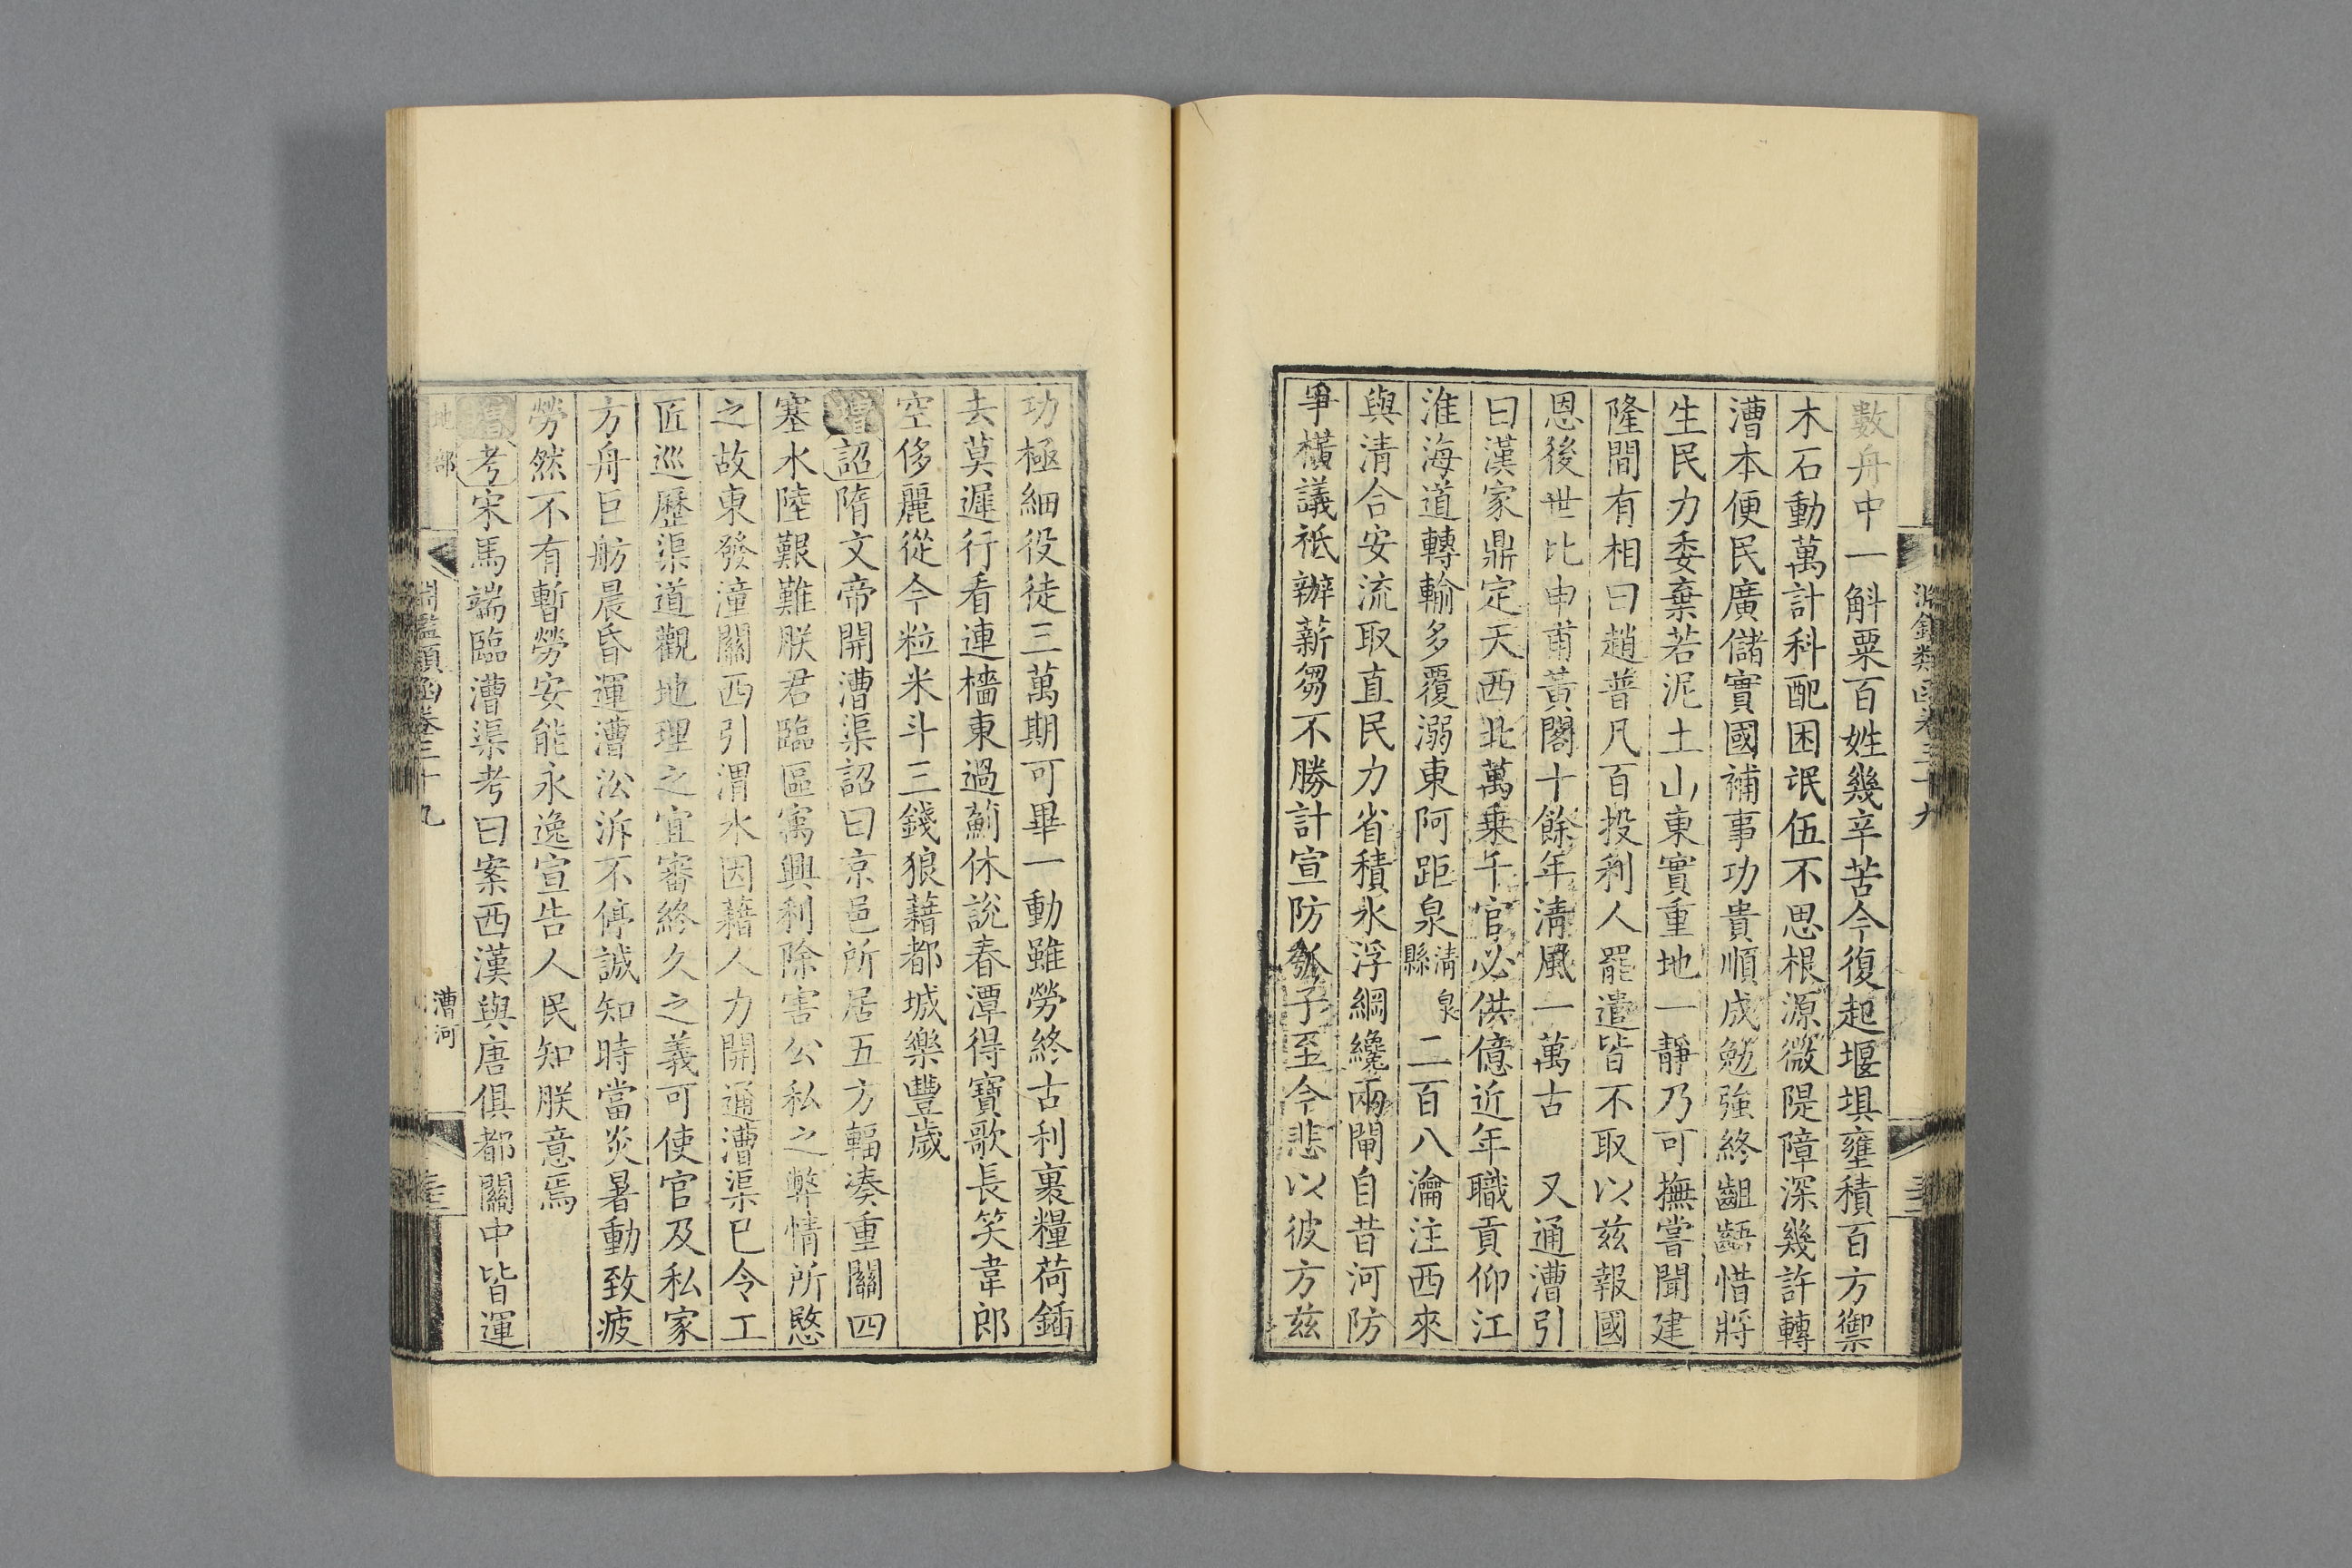 淵鑑類函卷三十九
數舟中一斛粟百姓幾辛苦今復起堰埧壅積百方禦
木石動萬計科配困氓伍不思根源微隄障深幾許轉
漕本便民廣儲實國補事功貴順成勉強終齟齬惜將
生民力委棄若泥土山東實重地一靜乃可撫嘗聞建
隆間有相曰趙普凡百投利人罷遣皆不取以兹報國
恩後世比申甫黃閣十餘年清風一萬古　又通漕引
曰漢家鼎定天西北萬乗千官必供億近年職貢仰江
淮海道轉輸多覆溺東阿距泉清泉縣二百八瀹注西來
與清合安流取直民力省積水浮綱纔兩閘自昔河防
爭橫議祇辦薪芻不勝計宣防瓠子至今悲以彼方兹
功極細役徒三萬期可畢一動雖勞終古利裹糧荷鍤
去莫遲行看連檣東過薊休說春潭得寶歌長笑韋郎
空侈麗從今粒米斗三錢狼藉都城樂豐歲
增詔隋文帝開漕渠詔曰京邑所居五方輻湊重關四
塞水陸艱難朕君臨區寓興利除害公私之弊情所愍
之故東發潼關西引渭水因藉人力開通漕渠已令工
匠巡歷渠道觀地理之宜審終久之義可使官及私家
方舟巨舫晨昏運漕㳂泝不停誠知時當炎暑動致疲
勞然不有暫勞安能永逸宣告人民知朕意焉
增考宋馬端臨漕渠考曰案西漢與唐俱都關中皆運
地部　淵鑑類函卷三十九　漕河